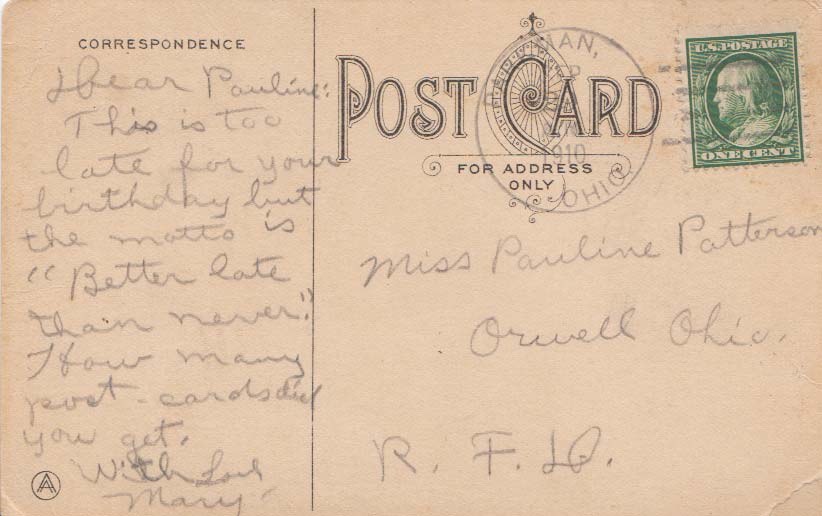 CORRESPONDENCE
Dear Pauline:
This is too
late for your
birthday but
the motto is
"Better late
than never."
How many
post-cards did
you get.
With Love
Mary-
POST CARD
FOR ADDRESS
ONLY
MAN,
1910
OHIO
U.S. POSTAGE
ONE CENT
Miss Pauline Patterson
Orwell Ohio.
R. F. D.